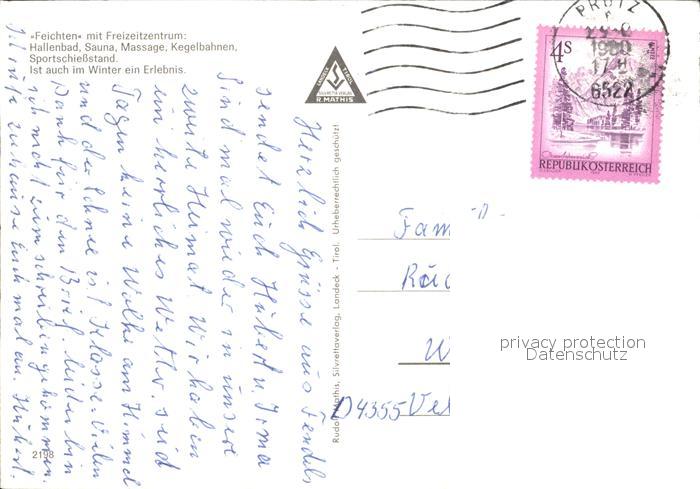 »Feichten« mit Freizeitzentrum:
Hallenbad, Sauna, Massage, Kegelbahnen,
Sportschießstand.
Ist auch im Winter ein Erlebnis.
R. MATHIS
Rudolf Mathis, Silvrettaverlag, Landeck - Tirol. Urheberrechtlich geschützt!
2198
PRUTZ
1980
6522
4S
REPUBLIK ÖSTERREICH
Herzlich Grüsse aus Fendels
sendet Euch Hubert u. Irma
Sind mal wieder in unsere
zweite Heimat. Wir haben
ein herrliches Wetter. seid
Tagen keine Wolke am Himmel
und der Schnee ist Klasse. Vielen
Dank für den Brief. leider bin
ich nicht zum schreiben gekommen.
Ich rufe zuhause Euch mal an. Hubert.
Fam
D4355
privacy protection
Datenschutz